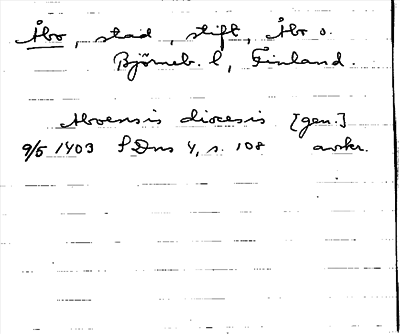 Åbo, stad, stift, Åbo o.
Björneb. l, Finland.
Aboensis diocesis [gen.]
9/5 1403 SDns 4, s. 108 avskr.